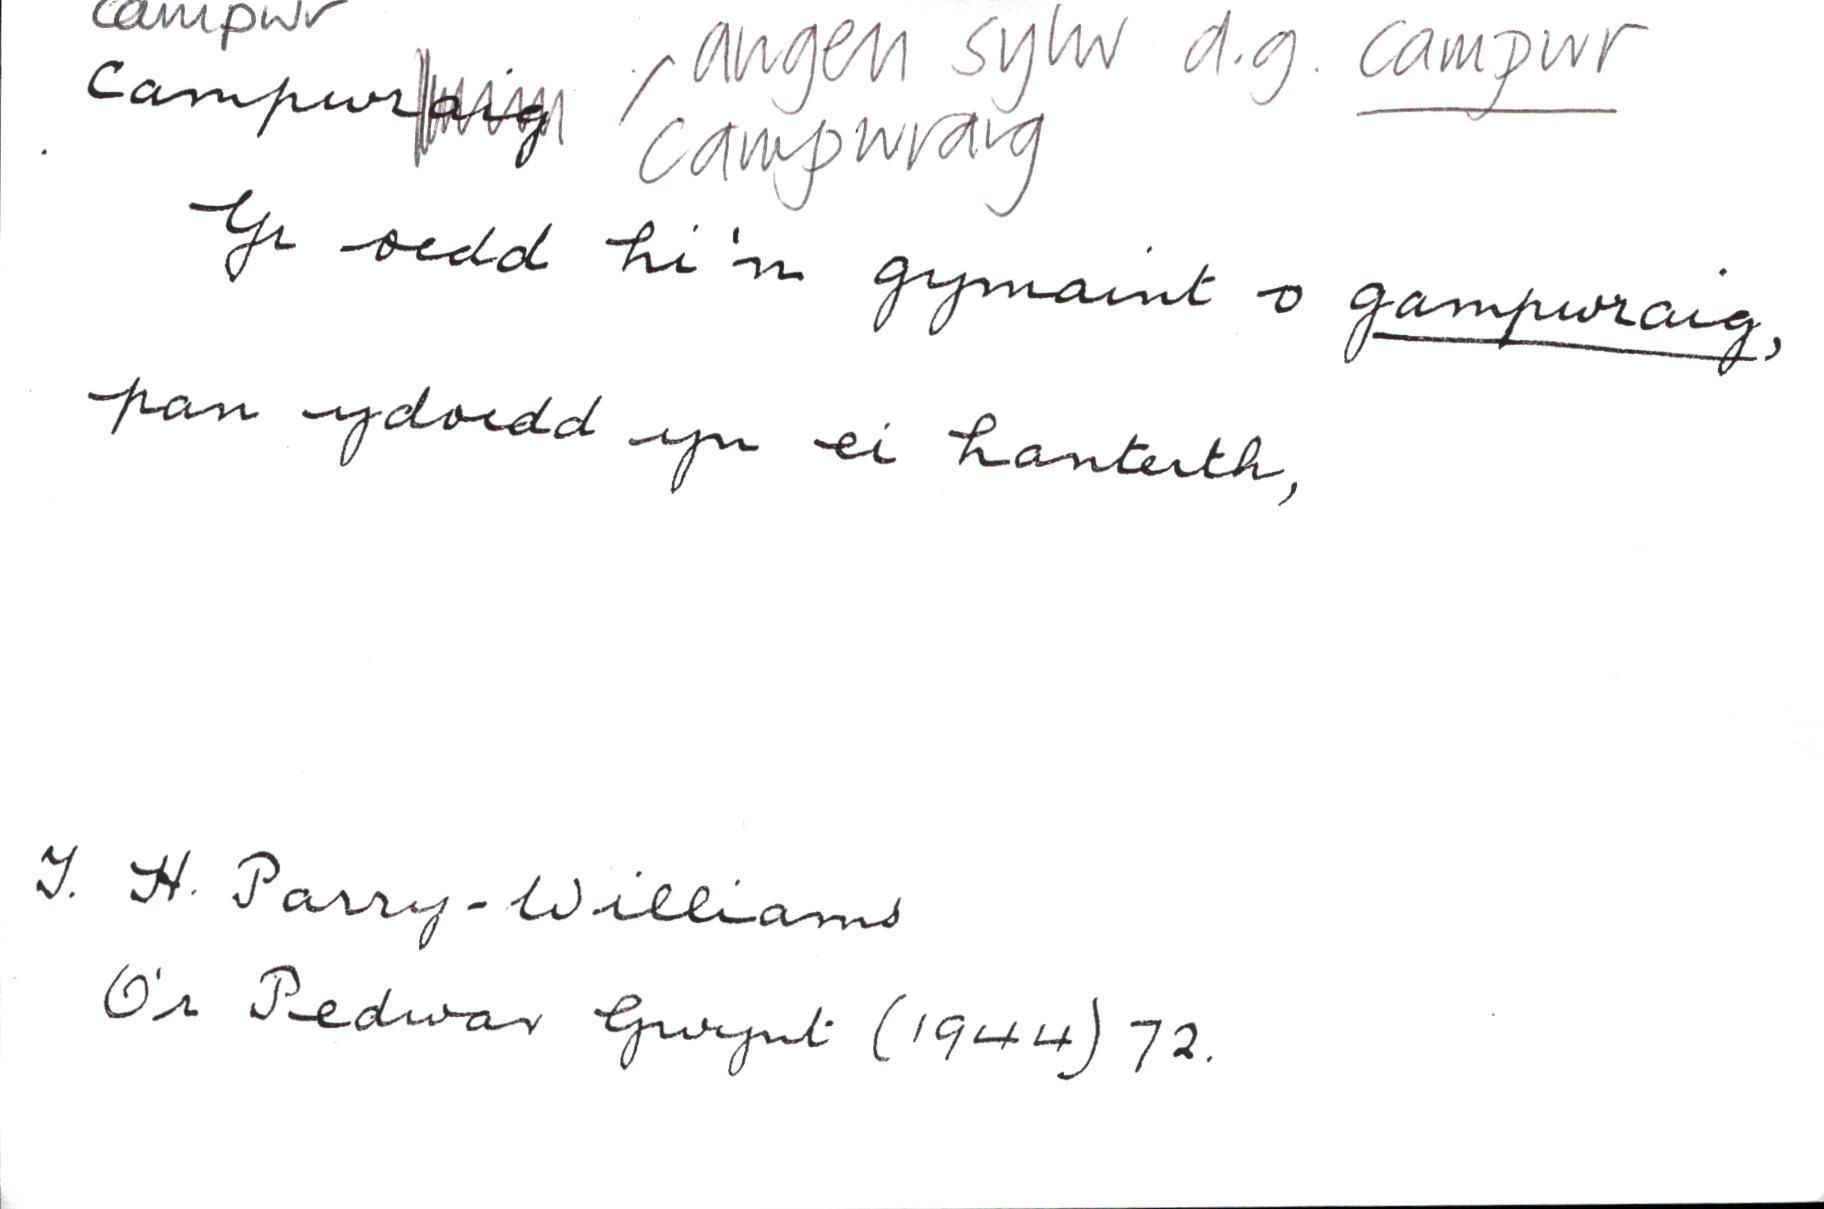 campwr
Campwraig / angen sylw d.g. campwr
campwraig
Yr oedd hi'n gymaint o gampwraig,
pan ydoedd yn ei hanterth,
T. H. Parry-Williams
O'r Pedwar Gwynt (1944) 72.